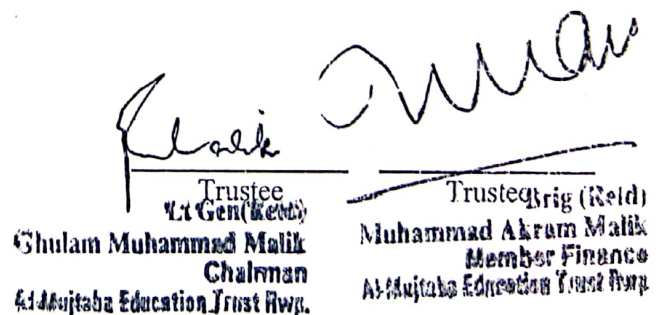 Malik
Trustee
Lt Gen(Retd)
Ghulam Muhammad Malik
Chairman
Al-Mujtaba Education Trust Rwp.
Trustee
Brig (Retd)
Muhammad Akram Malik
Member Finance
Al-Mujtaba Education Trust Rwp